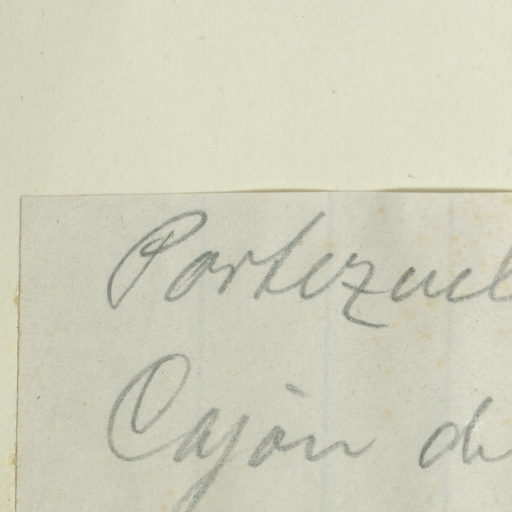 Portezuel
Cajón de